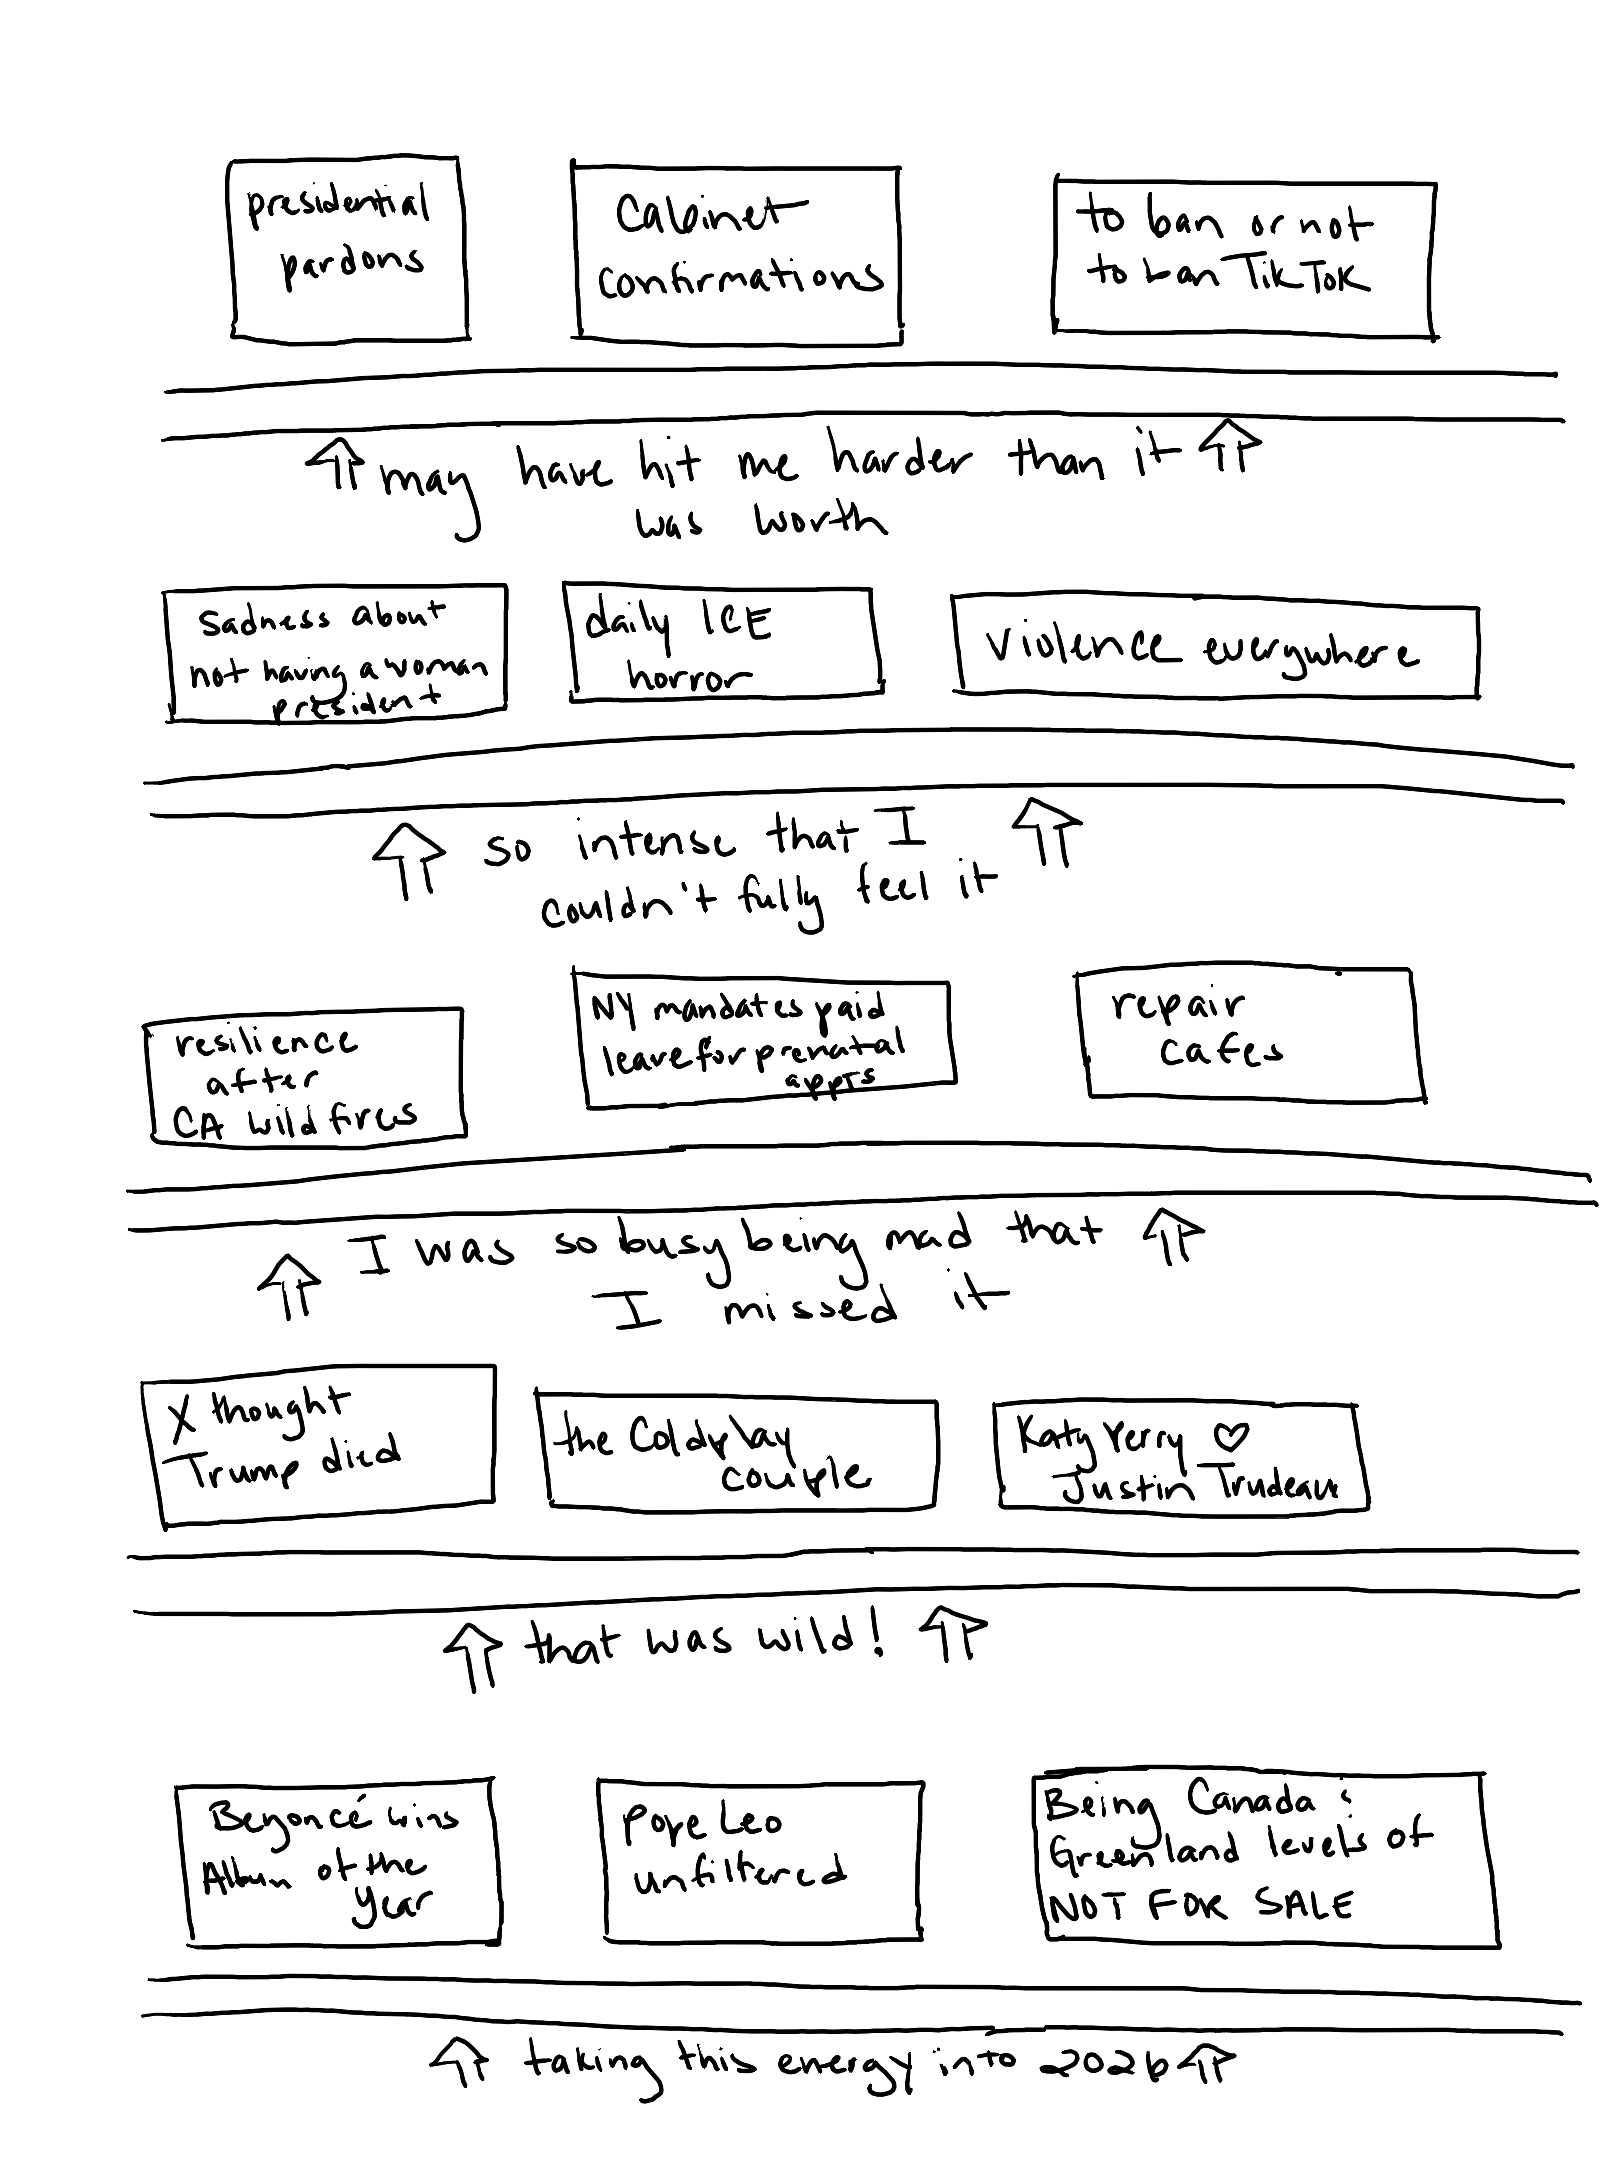 presidential
pardons
Cabinet
confirmations
to ban or not
to ban TikTok
may have hit me harder than it
was worth
Sadness about
not having a woman
president
daily ICE
horror
violence everywhere
so intense that I
couldn't fully feel it
resilience
after
CA wildfires
NY mandates paid
leave for prenatal
appts
repair
cafes
I was so busy being mad that
I missed it
X thought
Trump died
the Coldplay
couple
Katy Perry ♡
Justin Trudeau
that was wild!
Beyoncé wins
Album of the
year
Pope Leo
unfiltered
Being Canada &
Greenland levels of
NOT FOR SALE
taking this energy into 2026